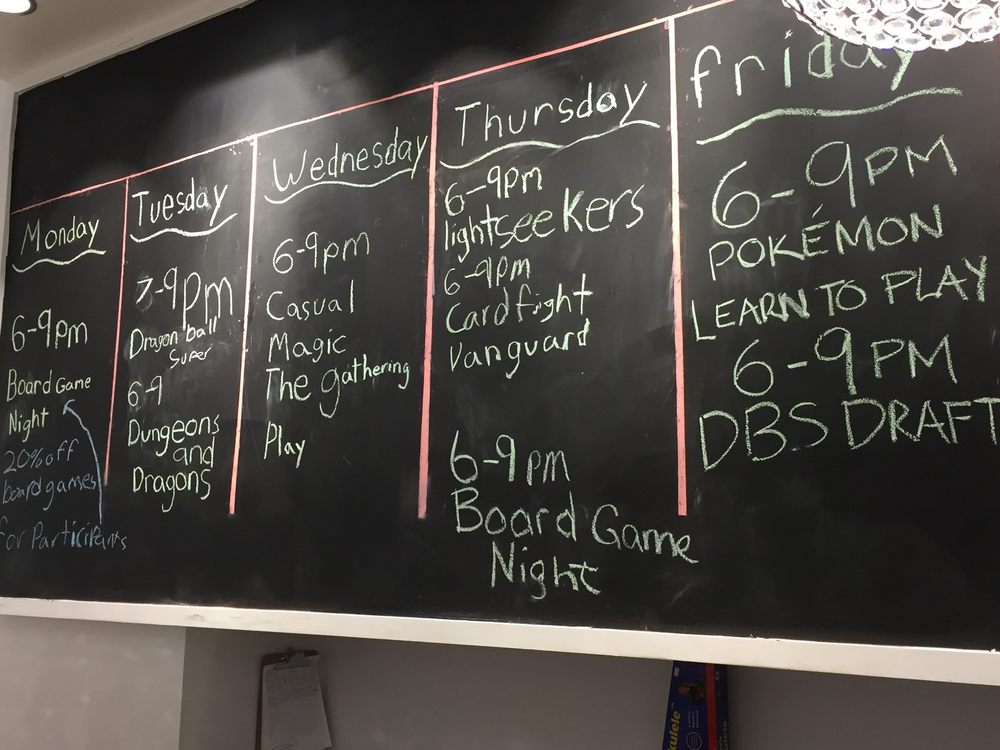 Monday
6-9pm
Board Game
Night
20% off
board games
for Participants
Tuesday
7-9pm
Dragon ball
Super
6-9
Dungeons
and
Dragons
Wednesday
6-9pm
Casual
Magic
The gathering
Play
Thursday
6-9pm
lightseekers
6-9pm
Cardfight
Vanguard
6-9pm
Board Game
Night
friday
6-9PM
POKÉMON
LEARN TO PLAY
6-9PM
DBS DRAFT
ukulele